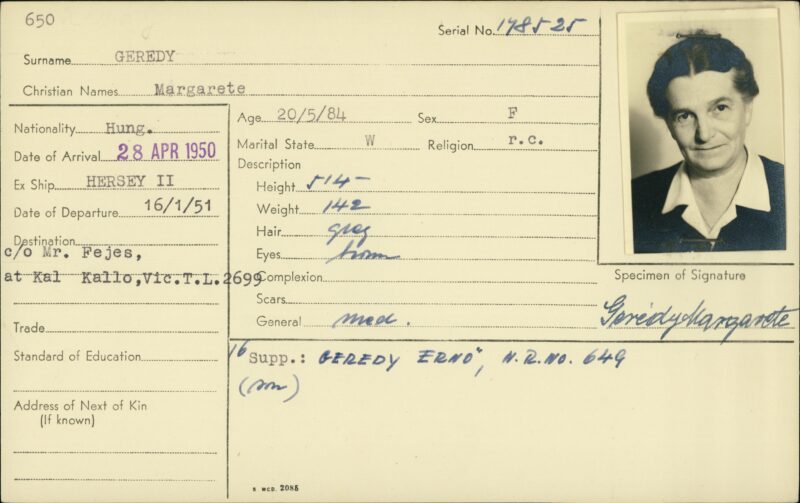 650
Serial No. 178525
Surname GEREDY
Christian Names Margarete
Nationality Hung.
Date of Arrival 28 APR 1950
Ex Ship HERSEY II
Date of Departure 16/1/51
Destination
c/o Mr. Fejes,
at Kal Kallo,Vic.T.L.2699
Trade
Standard of Education
Address of Next of Kin
(If known)
Age 20/5/84 Sex F
Marital State W Religion r.c.
Description
Height 5'4"
Weight 142
Hair grey
Eyes brown
Complexion
Scars
General med.
Specimen of Signature
Gerédy Margarete
16 Supp.: GEREDY ERNÖ, N.R.NO. 649
(son)
S WCD. 2085